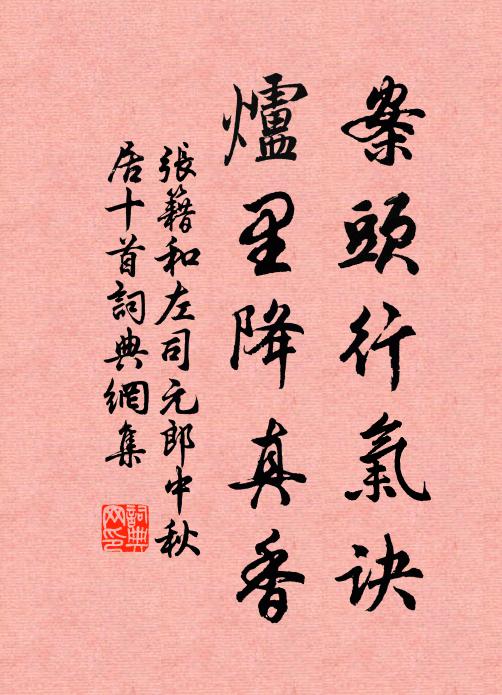 案頭行氣訣
爐里降真香
張籍和左司元郎中秋
居十首詞典網集
詞典
网印